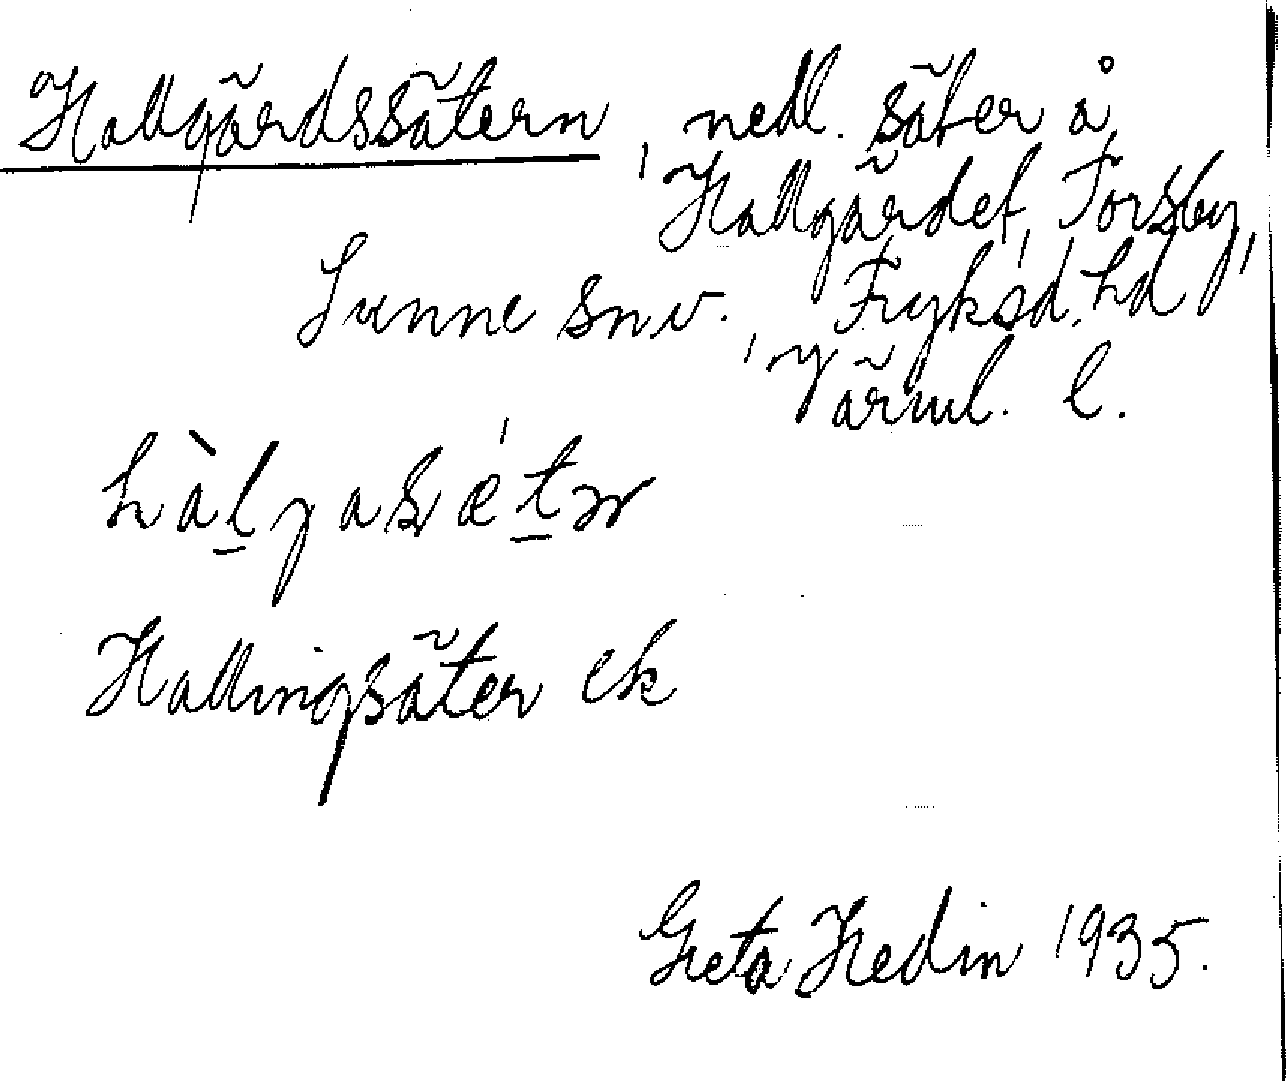 Hallgärdssätern, nedl. säter å
Hallgärdet, Torsby,
Sunne snv., Fryksd. hd,
Värml. l.
hàl̠jasǽt̠ər
Hallingsäter ek
Greta Hedin 1935.